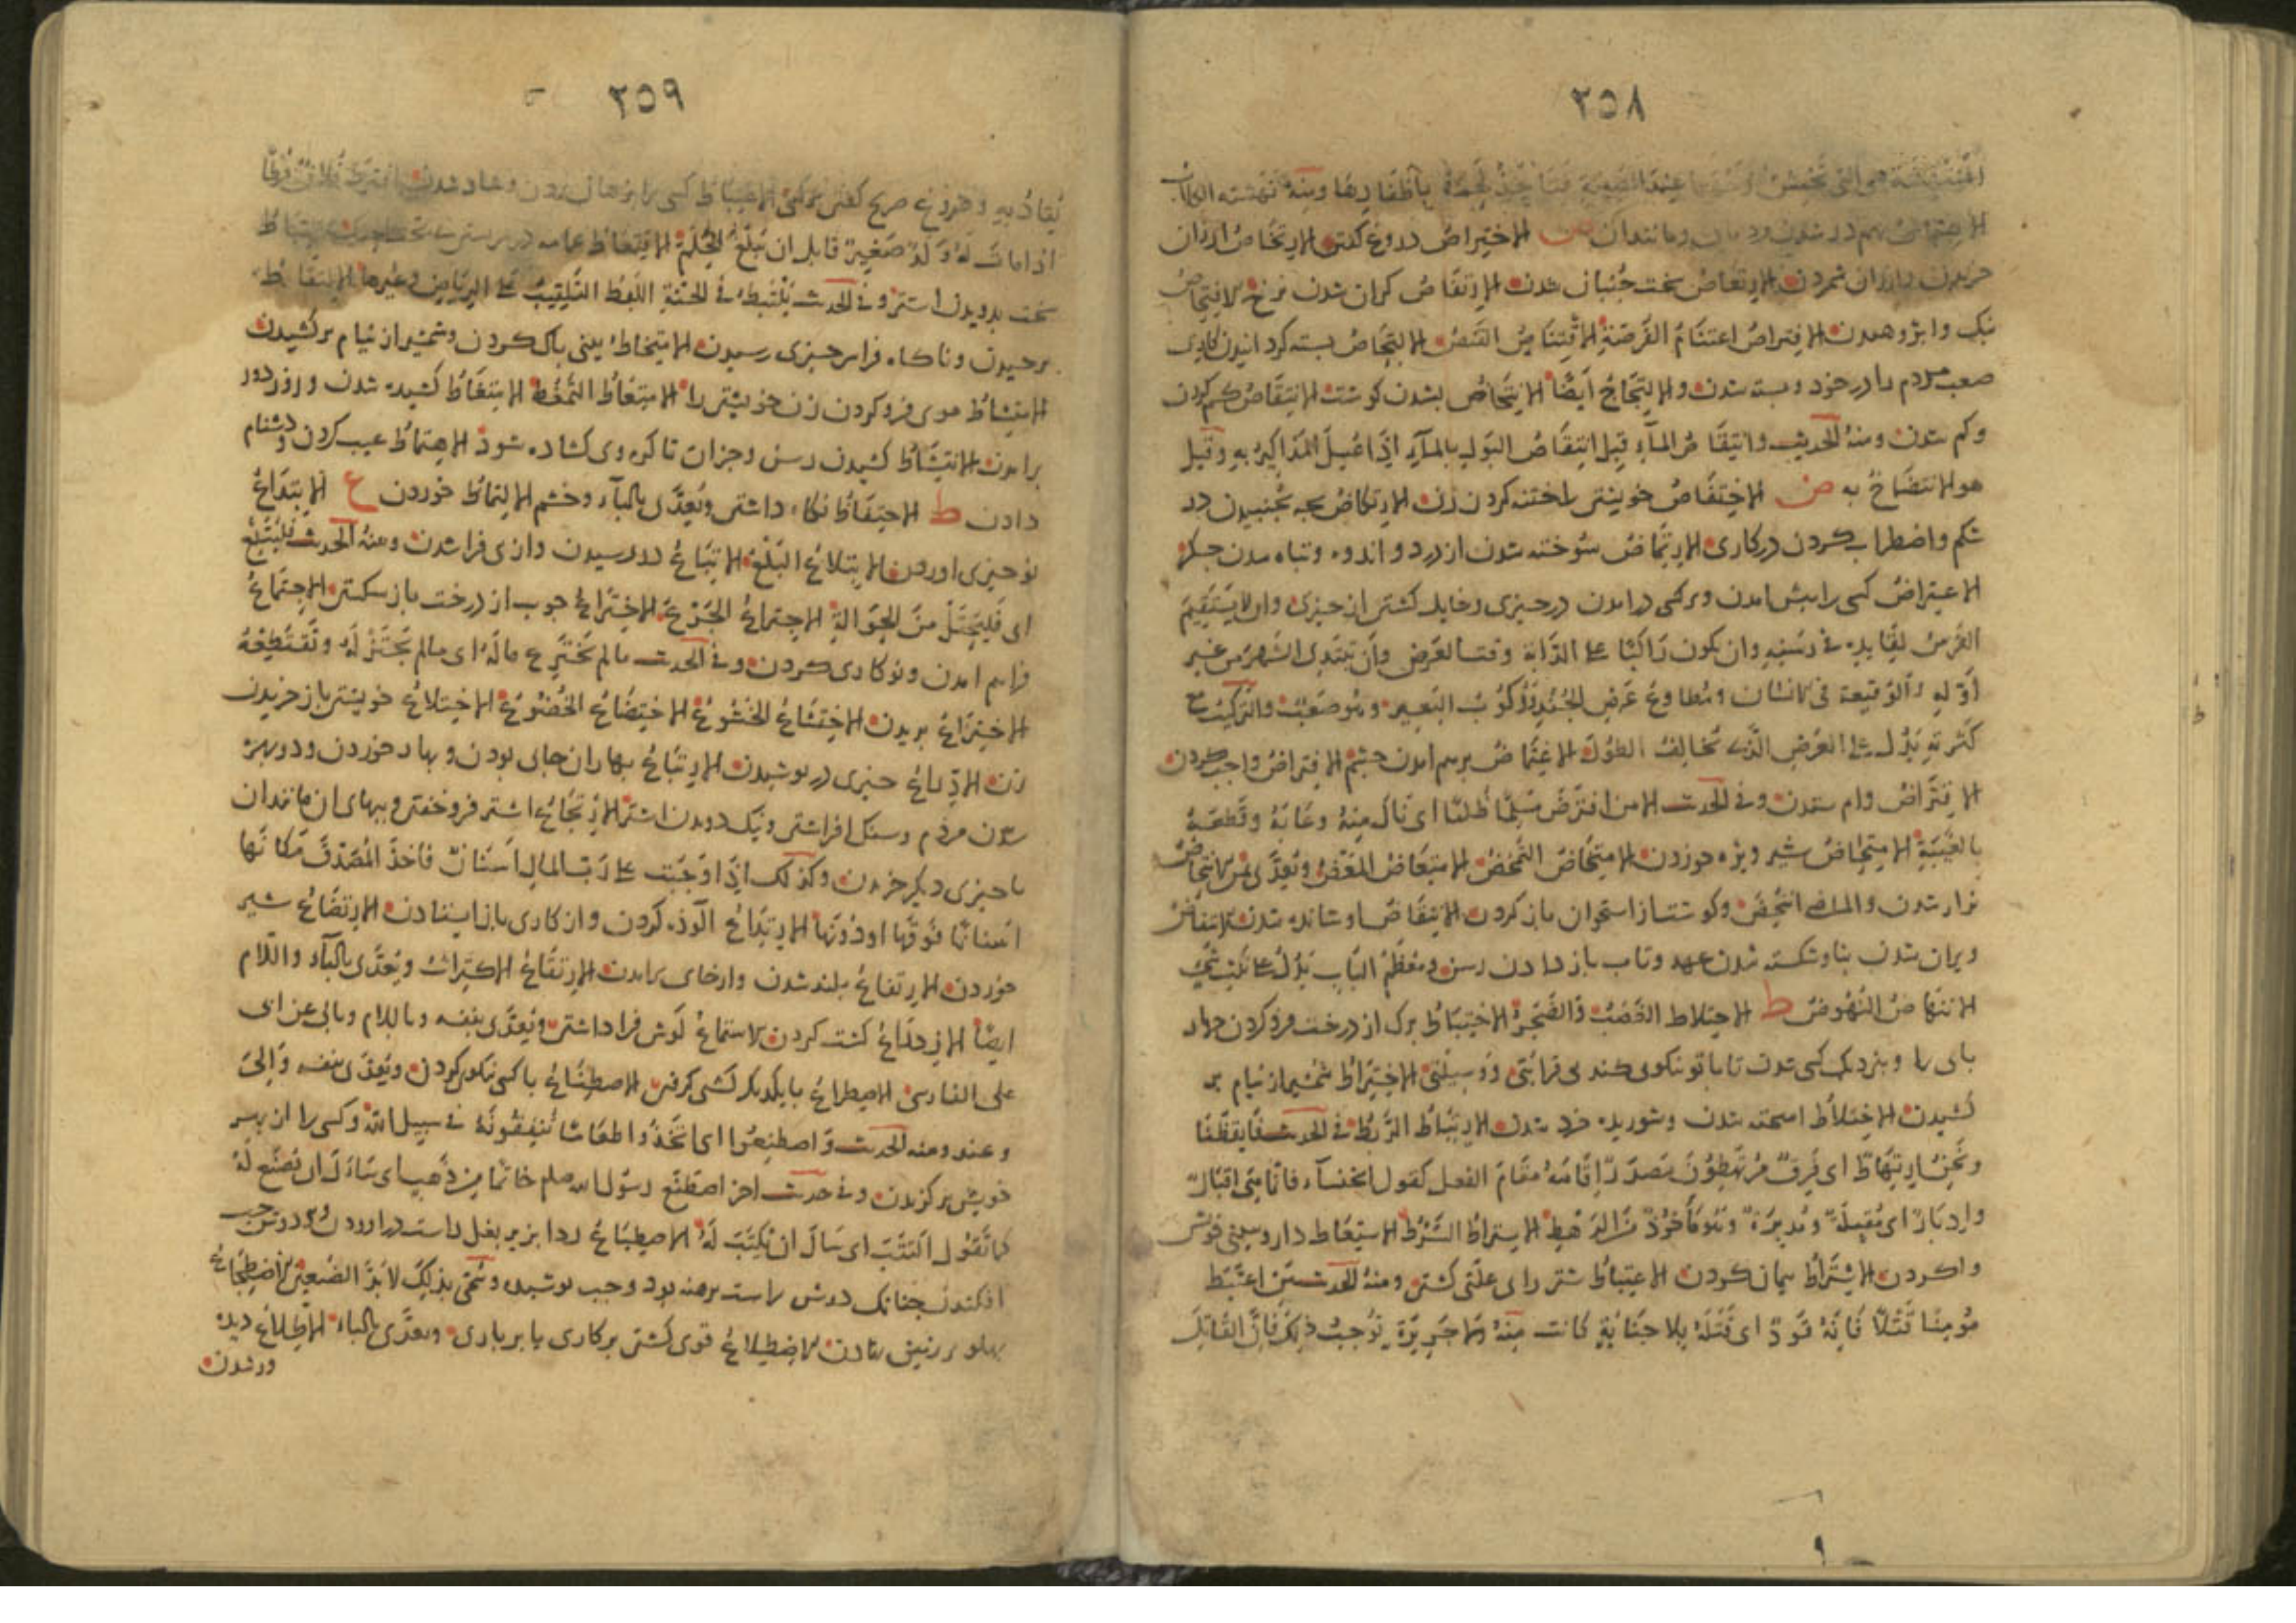 ٢٥٨
هى التى تخمش عند المصيبة فتاخذ لحمه باظفارها ومنه نهشته الكلاب
الاهتماش بهم در شدن ومانندان ص الاختراص دروغ كفتن الارتخاص ارزان
خريدن وارزان شمردن الارتعاص سخت جنبان شدن الارتقاص كران شدن نرخ الافتحاص
نيك وا پژوهيدن الافتراص اغتنام الفرصة الاقتناص القنص الالتحاص بسته كردانيدن كارى
صعب مردم را در خود وبسته شدن والالتحاج ايضا الانتحاص بشدن كوشت الانتقاص كم كردن
وكم شدن ومنه الحديث وانتقاص الماء قيل انتقاص البول بالماء اذا غسل المذاكير به وقيل
هو الانتضاح به ض الاختفاض خويشتن را ختنه كردن زن الارتكاض بچه بجنبيدن در
شكم واضطراب كردن در كارى الارتماض سوخته شدن از درد واندوه وتباه شدن جكر
الاعتراض كسى را پيش امدن وبر كسى در امدن در چيزى وحايل كشتن از چيزى وان لا يستقيم
الفرس لقايده فى رسنه وان يكون راكبا على الدابة وقت العرض وان يبتدى الشهر من غير
اوله والوقيعة فى الانسان ومطاوع عرض الجند وركوب البعير وهو صعب والتركيب مع
كثرته يدل على العرض الذى يخالف الطول الاغتماض برهم امدن چشم الافتراض واجب كردن
الاقتراض وام ستدن وفى الحديث الا من اقترض مسلما ظلما اى نال منه وعابه وقطعه
بالغيبة الامتحاض شير ويژه خوردن الامتخاض التمخض الامتعاض المعض ويعدى بمن الانتحاض
نزار شدن والماضى انتحض وكوشت از استخوان باز كردن الانتفاض اوشانده شدن الانتقاض
ويران شدن بنا وشكسته شدن عهد وتاب باز دادن رسن ومعظم الباب يدل على نكث شى
الانتهاض النهوض ط الاحتلاط الغضب والضجر الاختباط برك از درخت فرو كردن چهار
پاى را وبنزديك كسى شدن تا با تو نيكوى كند بى قرابتى ووسيلتى الاختراط شمشير از نيام بر
كشيدن الاختلاط اميخته شدن وشوريده خرد شدن الارتباط الربط فى الحديث فايقظنا
ونحن ارتهاط اى فرق مرتهطون مصدر اقامه مقام الفعل كقول الخنساء فانما هى اقبال
وادبار اى مقبلة ومدبرة وهو ماخوذ من الرهط الاستراط السرط الاستعاط دارو ببينى خويش
وا كردن الاشتراط پيمان كردن الاعتباط شتر را بى علتى كشتن ومنه الحديث من اعتبط
مؤمنا قتلا فانه قود اى قتله بلا جناية كانت منه ولا جريرة توجب ذلك فان القاتل
٢٥٩
يقاد به ودروغ صريح كفتن بر كسى الاغتباط كسى را پژهان بردن وشاد شدن افترط فلان فرطا
اذا مات له ولد صغير قبل ان يبلغ الحلم الاقتعاط عمامه در سر بستن
سخت بدويدن اشتر وفى الحديث يلتبط فى الجنة اللبط التقليب على الرياض وغيرها الالتقاط
برچيدن وناكاه فرا سر چيزى رسيدن الامتخاط بينى پاك كردن وشمشير از نيام بر كشيدن
الامتشاط موى فرو كردن زن خويشتن را الامتعاط التمعط الامتغاط كشيده شدن وروز دور
برامدن الانتشاط كشيدن رسن وجزان تا كره وى كشاده شود الاهتماط عيب كردن ودشنام
دادن ظ الاحتفاظ نكاه داشتن ويعدى بالباء وخشم الالتماظ خوردن ع الابتداع
نو چيزى اوردن الابتلاع البلع الاتباع در رسيدن واز پى فرا شدن ومنه الحديث فليتبع
اى فليحتل من الحوالة الاجتراع الجرع الاختراع چوب از درخت باز شكستن الاجتماع
فراهم امدن ونو كارى كردن وفى الحديث ما لم تخترع ماله اى ما لم تجتز له وتقتطعه
الاختزاع بريدن الاختشاع الخشوع الاختضاع الخضوع الاختلاع خويشتن باز خريدن
زن الادراع چيزى در پوشيدن الارتباع بهاران جاى بودن وبهار خوردن ودوبهره
شدن مردم وسنك افراشتن ونيك دويدن اشتر الارتجاع اشتر فروختن وببهاى ان مانندان
يا چيزى ديكر خريدن وكذلك اذا وجبت على رب المال اسنان فاخذ المصدق مكانها
اسنانا فوقها او دونها الارتداع الوده كردن واز كارى باز ايستادن الارتضاع شير
خوردن الارتفاع بلند شدن وارجاى برامدن الارتقاع الاكتراث ويعدى بالباء واللام
ايضا الازدراع كشت كردن الاستماع كوش فرا داشتن ويعدى بنفسه وباللام وبالى عن ابى
على الفارسى الاصطراع با يكديكر كشتى كرفتن الاصطناع با كسى نيكوى كردن ويعدى بنفسه والى
وعند ومنه الحديث واصطنعوا اى اتخذوا طعاما تنفقونه فى سبيل الله وكسى را از بهر
خويش بركزيدن وفى حديث اخر اصطنع رسول الله صلعم خاتما من ذهب اى سال ان يصنع له
كما تقول اكتتب اى سال ان يكتب له الاصطباع ردا بزير بغل راست در اوردن وبر دوش چپ
افكندن چنانك دوش راست برهنه بود وچپ پوشيده وسمى بذلك لابد الضبعين الاضطجاع
پهلو بر زمين نهادن الاضطلاع قوى كشتن بر كارى يا بر بارى ويعدى بالباء الاطلاع ديده
ور شدن